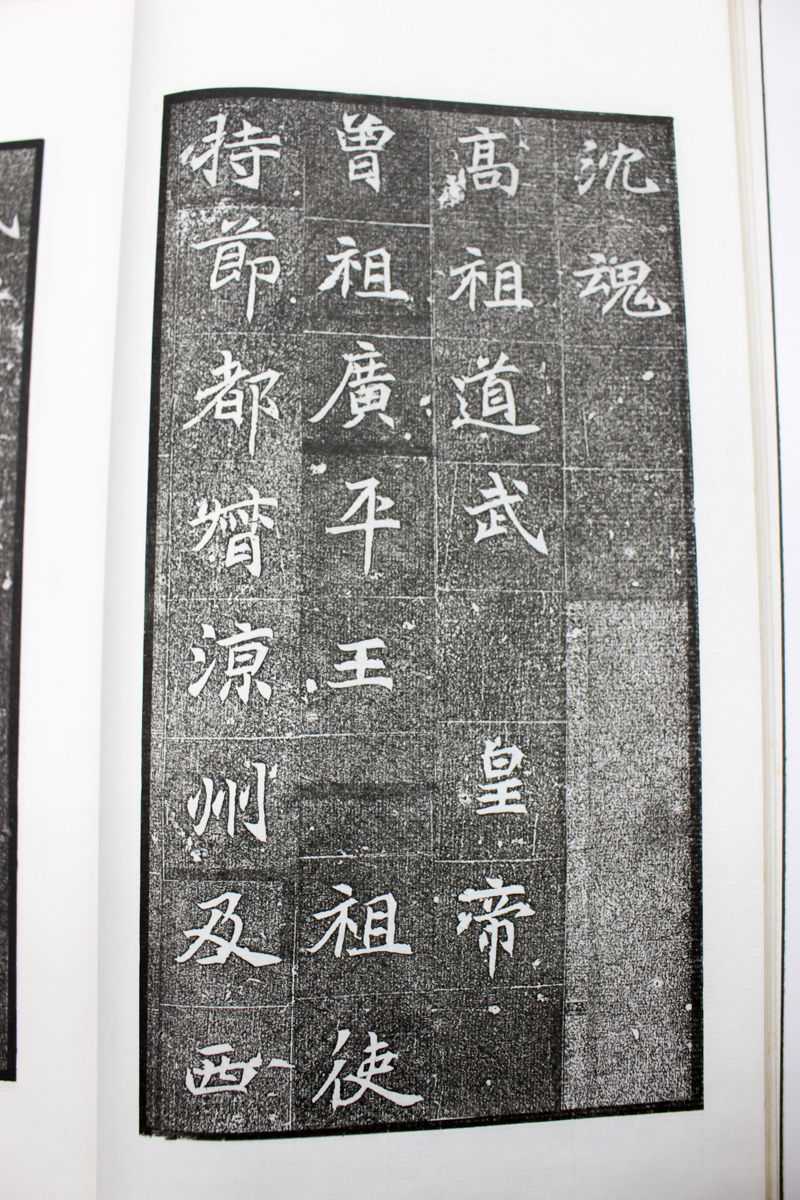 沈魂
髙祖道武 皇帝
曾祖廣平王 祖使
持節都督涼州及西